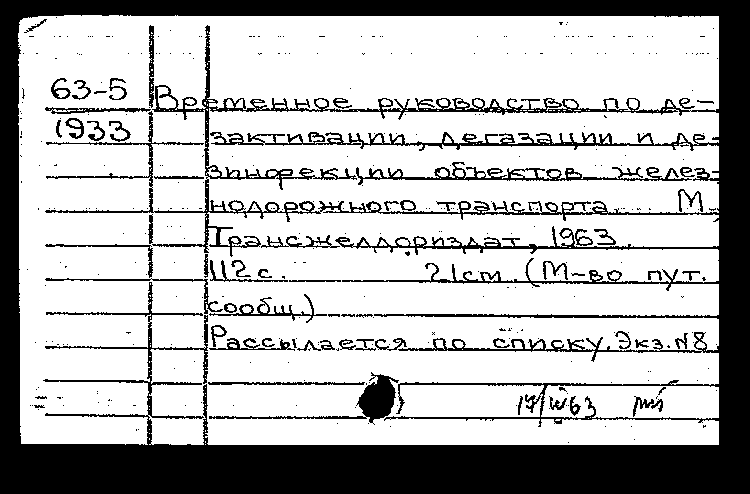 63-5 Временное руководство по де-
1933 зактивации, дегазации и де-
зинфекции объектов желез-
нодорожного транспорта. М.
Трансжелдориздат, 1963.
112 с. 21см. (М-во пут.
сообщ.)
Рассылается по списку. Экз. №8.
63